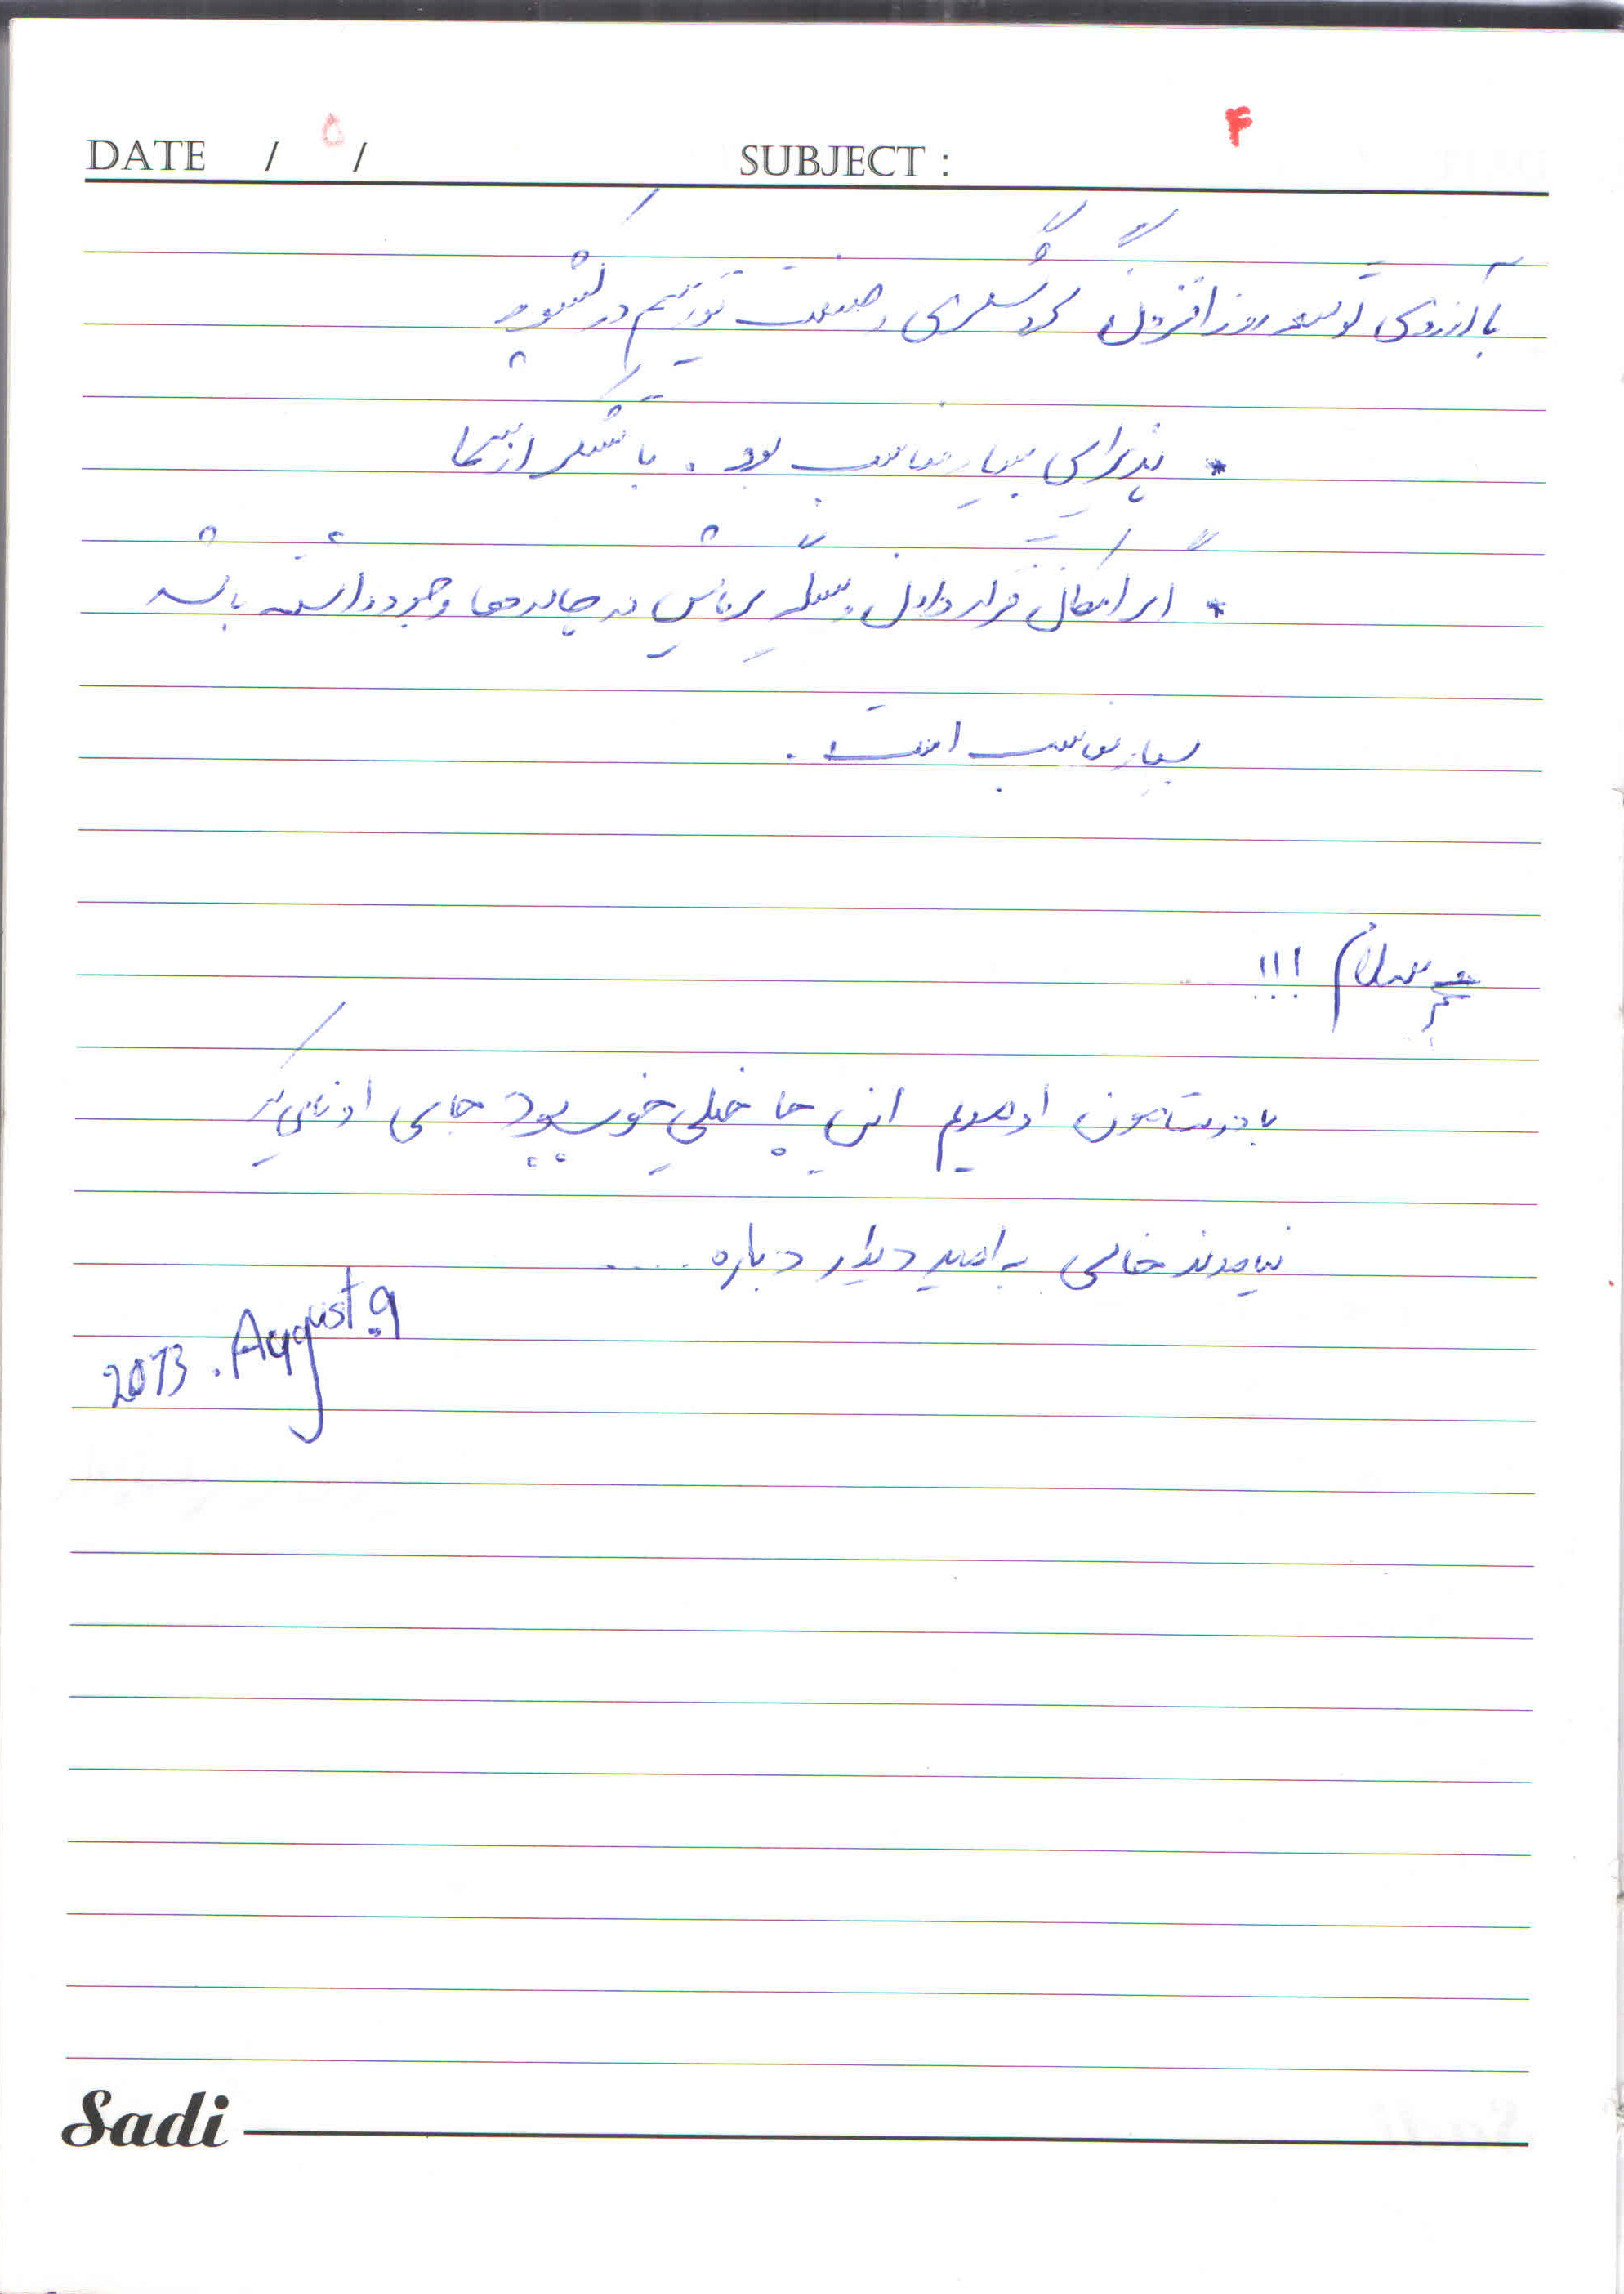 DATE / ۵ /
SUBJECT :
۴
با آرزوی توسعه روز افزون گردشگری و صنعت توریسم در کشور
* پذیرایی بسیار مناسب بود . با تشکر از شما
* اگر امکان قرار دادن وسایل در چادرها وجود داشته باشد
بسیار مناسب است .
سلام !!!
با دوستامون اومدیم این جا خیلی خوب بود جای اونایی که
نیومدند خالی به امید دیدار دباره .....
2013 . August 9
Sadi